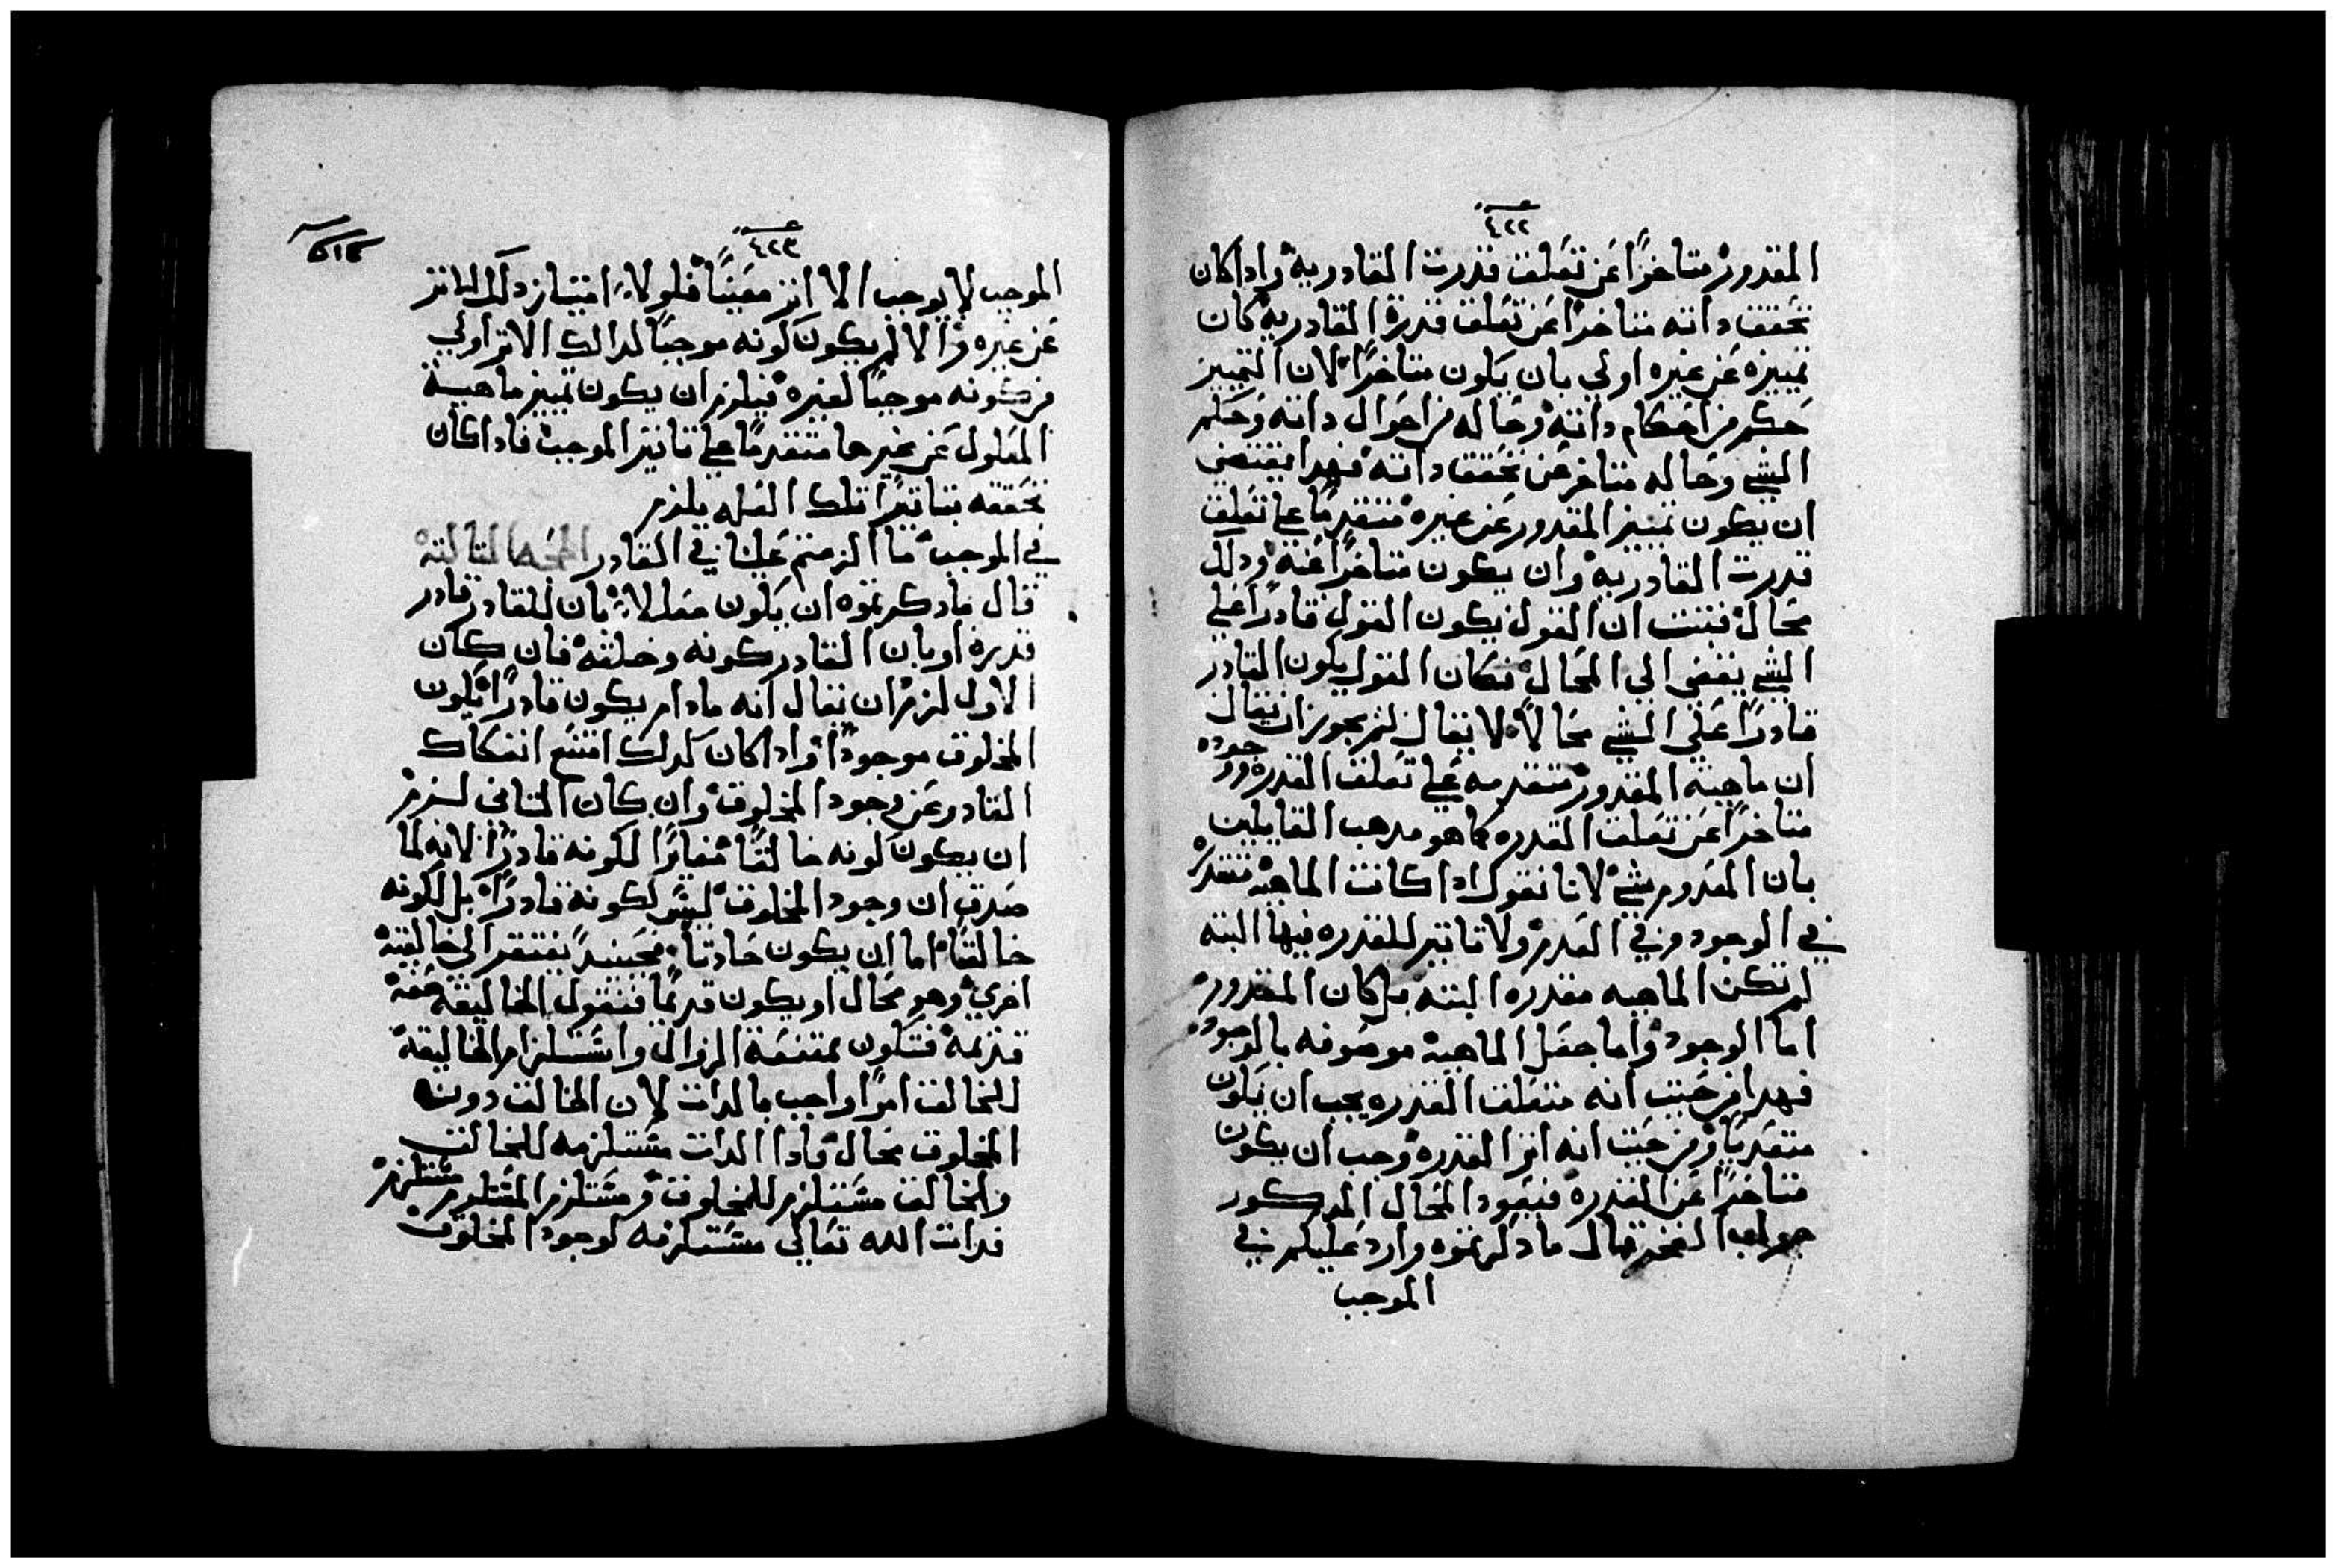 ٤٢٢
المقدور متاخرًا عن تعلقت قدرت القادريه واداكان
تحقق داته متاخرًا عن تعلقت قدرة القادريه كان
تمييزه عن غيره اولي بان يكون متاخرًا لان التمييز
حكم من احكام داته وحاله من احوال داته وحكم
الشي وحاله متاخر عن تحقق داته فهدا يقتضي
ان يكون تمييز المقدور عن غيره متقدمًا علي تعلقت
قدرت القادريه وان يكون متاخرًا عنه ودلك
محال فتبت ان القول يكون القول قادرًا علي
الشي يفضي الي المحال فكان القول بكون القادر
قادرًا علي الشي محالًا لا يقال لم يجوز ان يقال
ان ماهيته المقدور متقدمه علي تعلقت القدره ووجوده
متاخرًا عن تعلقت القدره كما هو مدهب القايلين
بان المعدوم شي لانا نقول اداكانت الماهيه متقدره
في الوجود وفي العدم ولا تاتير للقدره فيها البته
لم تكن الماهيه مقدره البته بل كان المقدور
اما الوجود واما جعل الماهيه موصوفه بالوجود
فهدا من حيت انه متعلقت القدره يجب ان يكون
متقدمًا ومن حيت انه اتر القدره وجب ان يكون
متاخرًا عن القدره فيعود المحال المدكور
جواب الفخر قال ما دكرتموه وارد عليكم في
الموجب
٤٢٣
الموجب لا يوجب الا اتر معينًا فلولا امتياز دلك الاتر
عن غيره والا لم يكون كونه موجبًا لدالك الاتر اولي
من كونه موجبًا لغيره فيلزم ان يكون تمييز ماهية
المعلول عن غيرها متقدمًا علي تاتير الموجب فاداكان
تحققه بتاتير تلك العله يلزم
في الموجب ما الزمتم علينا في القادر الحجه التالته
قال ما دكرتموه ان يكون معللا بان للقادر قادر
قدره او بان القادر كونه وخلقه فان كان
الاول لزم ان يقال انه مادام يكون قادرًا يكون
المخلوق موجودًا واداكان كدلك امتنع انفكاك
القادر عن وجود المخلوق وان كان التاني لزم
ان يكون كونه خالقًا مغايرًا لكونه قادرًا لانه لما
صدق ان وجود المخلوق ليس لكونه قادرًا بل لكونه
خالقًا اما ان يكون حادتا فحينيد يفتقر الي خالقيه
اخري وهو محال او يكون قديمًا فنقول الخاليقة صفة
قديمة فتكون ممتنعة الزوال واستلزام الخاليقة
للخالقت امرًا واجب بالدات لان الخالقت دون
المخلوق محال فادا الدات مستلزمه للخالقت
والخالقت مستلزم للمخلوق ومستلزم المستلزم مستلزم
فدات الله تعالي مستلزمه لوجود المخلوق